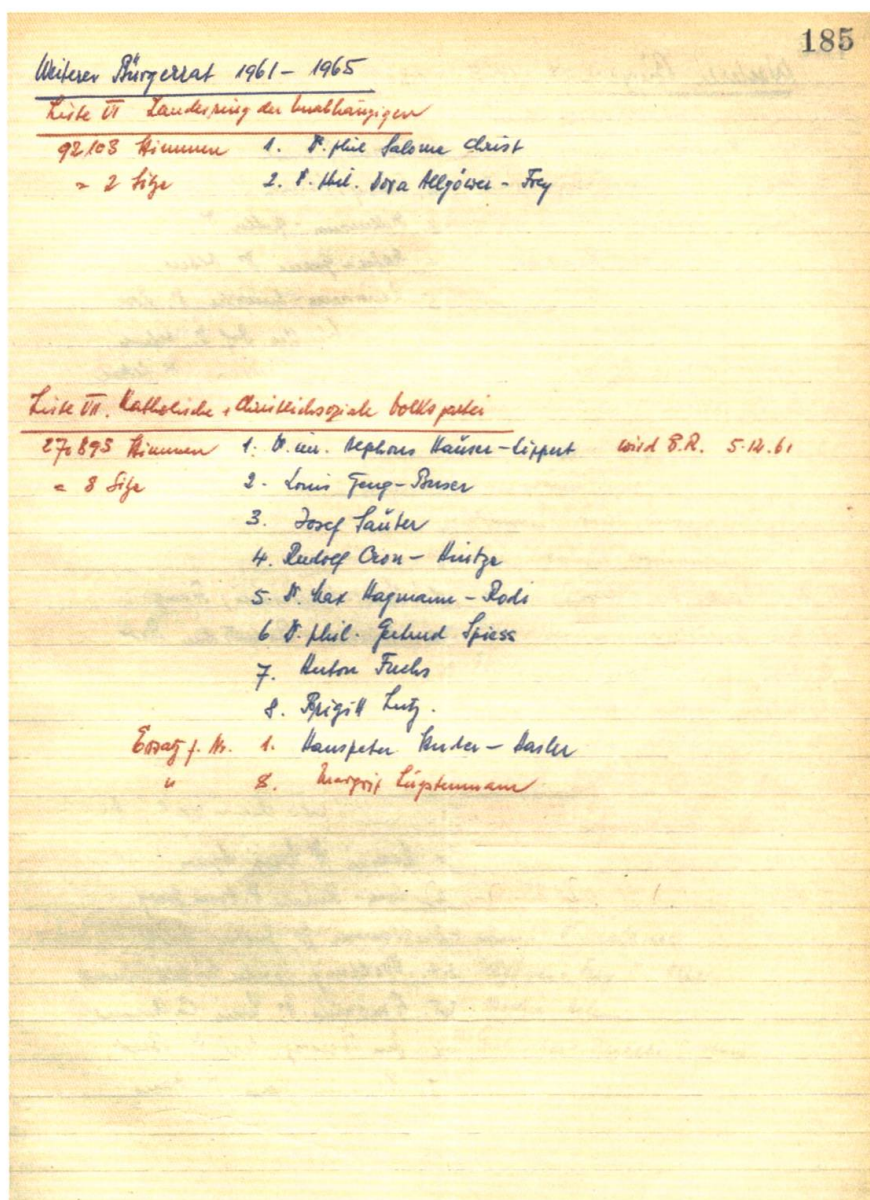 185
Weiterer Bürgerrat 1961 – 1965
Liste VI Landesring der Unabhängigen
92103 Stimmen 1. Dr. phil Salome Christ
= 2 Sitze 2. Dr. phil. Dora Allgöwer – Frey
Liste VII. Katholische & Christlichsoziale Volkspartei
270895 Stimmen 1. Dr. iur. Alphons Hauser – Lippert wird B.R. 5.12.61
= 8 Sitze 2. Louis Jeng – Buser
3. Josef Sauter
4. Rudolf Cron – Hintze
5. Dr. Max Hagmann – Rodi
6 Dr. phil. Gertrud Spiess
7. Anton Fuchs
8. Brigitt Lutz.
Ersatz f. Nr. 1. Hanspeter Studer – Hasler
" 8. Margrit